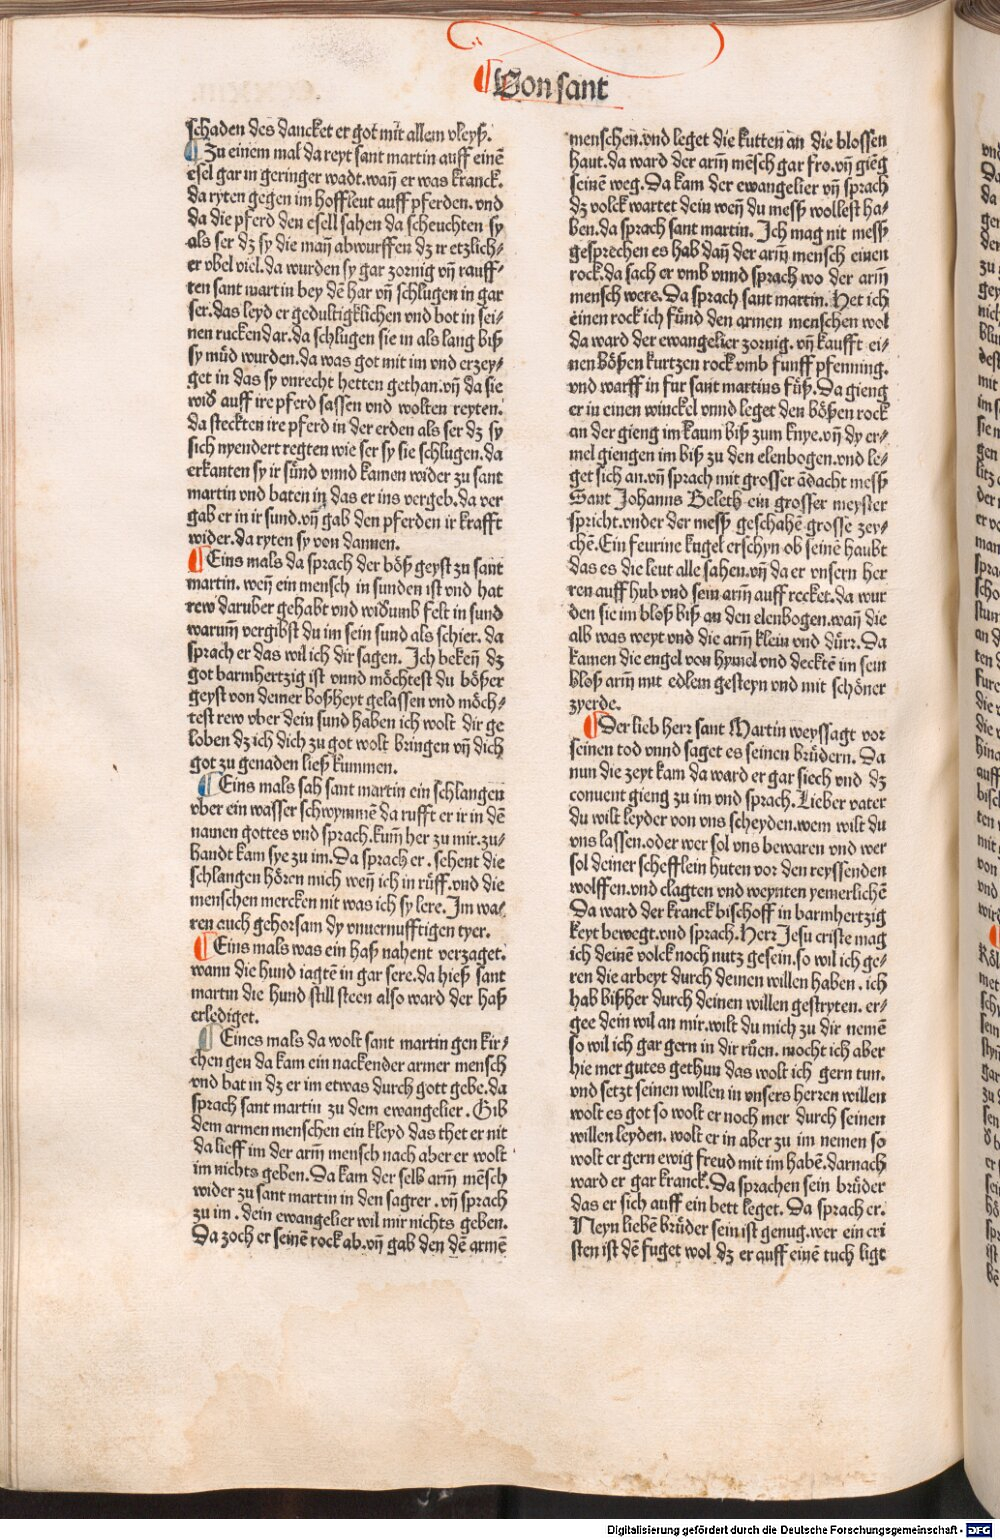 ¶ Von sant
schaden des dancket er got mit allem vleyß.
¶ Zu einem mal da reyt sant martin auff einē
esel gar in geringer wadt. wañ er was kranck.
da ryten gegen im hoffleut auff pferden. vnd
da die pferd den esell sahen da scheuchten sy
als ser dz sy die mañ abwurffen dz ir etzlich⸗
er vbel viel. da wurden sy gar zornig vñ rauff⸗
ten sant martin bey dē har vñ schlugen in gar
ser. das leyd er gedultigklichen vnd bot in sei⸗
nen rucken dar. da schlugen sie in als lang biß
sy müd wurden. da was got mit im vnd erzey⸗
get in das sy vnrecht hetten gethan. vñ da sie
wid auff ire pferd sassen vnd wolten reyten.
da steckten ire pferd in der erden als ser dz sy
sich nyendert regten wie ser sy sie schlugen. da
erkanten sy ir sünd vnnd kamen wider zu sant
martin vnd baten in das er ins vergeb. da ver
gab er in ir sund. vñ gab den pferden ir krafft
wider. da ryten sy von dannen.
¶ Eins mals da sprach der böß geyst zu sant
martin. weñ ein mensch in sunden ist vnd hat
rew daruber gehabt vnd widumb felt in sund
warum̃ vergibst du im sein sund als schier. da
sprach er das wil ich dir sagen. Ich bekeñ dz
got barmhertzig ist vnnd möchtest du bößer
geyst von deiner boßheyt gelassen vnd möch⸗
test rew vber dein sund haben ich wolt dir ge
loben dz ich dich zu got wolt bringen vñ dich
got zu genaden ließ kummen.
¶ Eins mals sah sant martin ein schlangen
vber ein wasser schwymmē da rufft er ir in dē
namen gottes vnd sprach. kum̃ her zu mir. zu⸗
handt kam sye zu im. Da sprach er. sehent die
schlangen hören mich weñ ich in rüff. vnd die
menschen mercken nit was ich sy lere. Im wa⸗
ren auch gehorsam dy vnuernufftigen tyer.
¶ Eins mals was ein haß nahent verzaget.
wann die hund iagtē in gar sere. da hieß sant
martin die hund still steen also ward der haß
erlediget.
¶ Eines mals da wolt sant martin gen kir⸗
chen gen da kam ein nackender armer mensch
vnd bat in dz er im etwas durch gott gebe. da
sprach sant martin zu dem ewangelier. Gib
dem armen menschen ein kleyd das thet er nit
da lieff im der arm̃ mensch nach aber er wolt
im nichts geben. Da kam der selb arm̃ mēsch
wider zu sant martin in den sagrer. vñ sprach
zu im. dein ewangelier wil mir nichts geben.
Da zoch er seinē rock ab. vñ gab den dē armē
menschen. vnd leget die kutten an die blossen
haut. da ward der arm̃ mēsch gar fro. vñ gieng
seinē weg. Da kam der ewangelier vñ sprach
dz volck wartet dein weñ du mess wollest ha⸗
ben. da sprach sant martin. Ich mag nit mess
gesprechen es hab dañ der arm̃ mensch einen
rock. da sach er vmb vnnd sprach wo der arm̃
mensch were. Da sprach sant martin. Het ich
einen rock ich fünd den armen menschen wol
da ward der ewangelier zornig. vñ kaufft ei⸗
nen bößen kurtzen rock vmb funff pfenning.
vnd warff in fur sant martins füß. Da gieng
er in einen winckel vnnd leget den bößen rock
an der gieng im kaum biß zum knye. vñ dy er⸗
mel giengen im biß zu den elenbogen. vnd le⸗
get sich an. vñ sprach mit grosser ādacht mess
Sant Johanns Beleth ein grosser meyster
spricht. vnder der mess geschahē grosse zey⸗
chē. Ein feurine kugel erschyn ob seinē haubt
das es die leut alle sahen. vñ da er vnsern her
ren auff hub vnd sein arm̃ auff recket. da wur
den sie im bloß biß an den elenbogen. wañ die
alb was weyt vnd die arm̃ klein vnd dürr. Da
kamen die engel von hymel vnd decktē im sein
bloß arm̃ mit edlem gesteyn vnd mit schöner
zyerde.
¶ Der lieb herr sant Martin weyssagt vor
seinen tod vnnd saget es seinen brüdern. Da
nun die zeyt kam da ward er gar siech vnd dz
conuent gieng zu im vnd sprach. Lieber vater
du wilt leyder von vns scheyden. wem wilt du
vns lassen. oder wer sol vns bewaren vnd wer
sol deiner schefflein huten vor den reyssenden
wolffen. vnd clagten vnd weynten yemerlichē
Da ward der kranck bischoff in barmhertzig
keyt bewegt. vnd sprach. Herr Jesu criste mag
ich deinē volck noch nutz gesein. so wil ich ge⸗
ren die arbeyt durch deinen willen haben. ich
hab bißher durch deinen willen gestryten. er⸗
gee dein wil an mir. wilt du mich zu dir nemē
so wil ich gar gern in dir růen. mocht ich aber
hie mer gutes gethun das wolt ich gern tun.
vnd setzt seinen willen in vnsers herren willen
wolt es got so wolt er noch mer durch seinen
willen leyden. wolt er in aber zu im nemen so
wolt er gern ewig freud mit im habē. darnach
ward er gar kranck. Da sprachen sein brüder
das er sich auff ein bett leget. Da sprach er.
Neyn liebē brüder sein ist genug. wer ein cri
sten ist dē fuget wol dz er auff einē tuch ligt
Digitalisierung gefördert durch die Deutsche Forschungsgemeinschaft - DFG